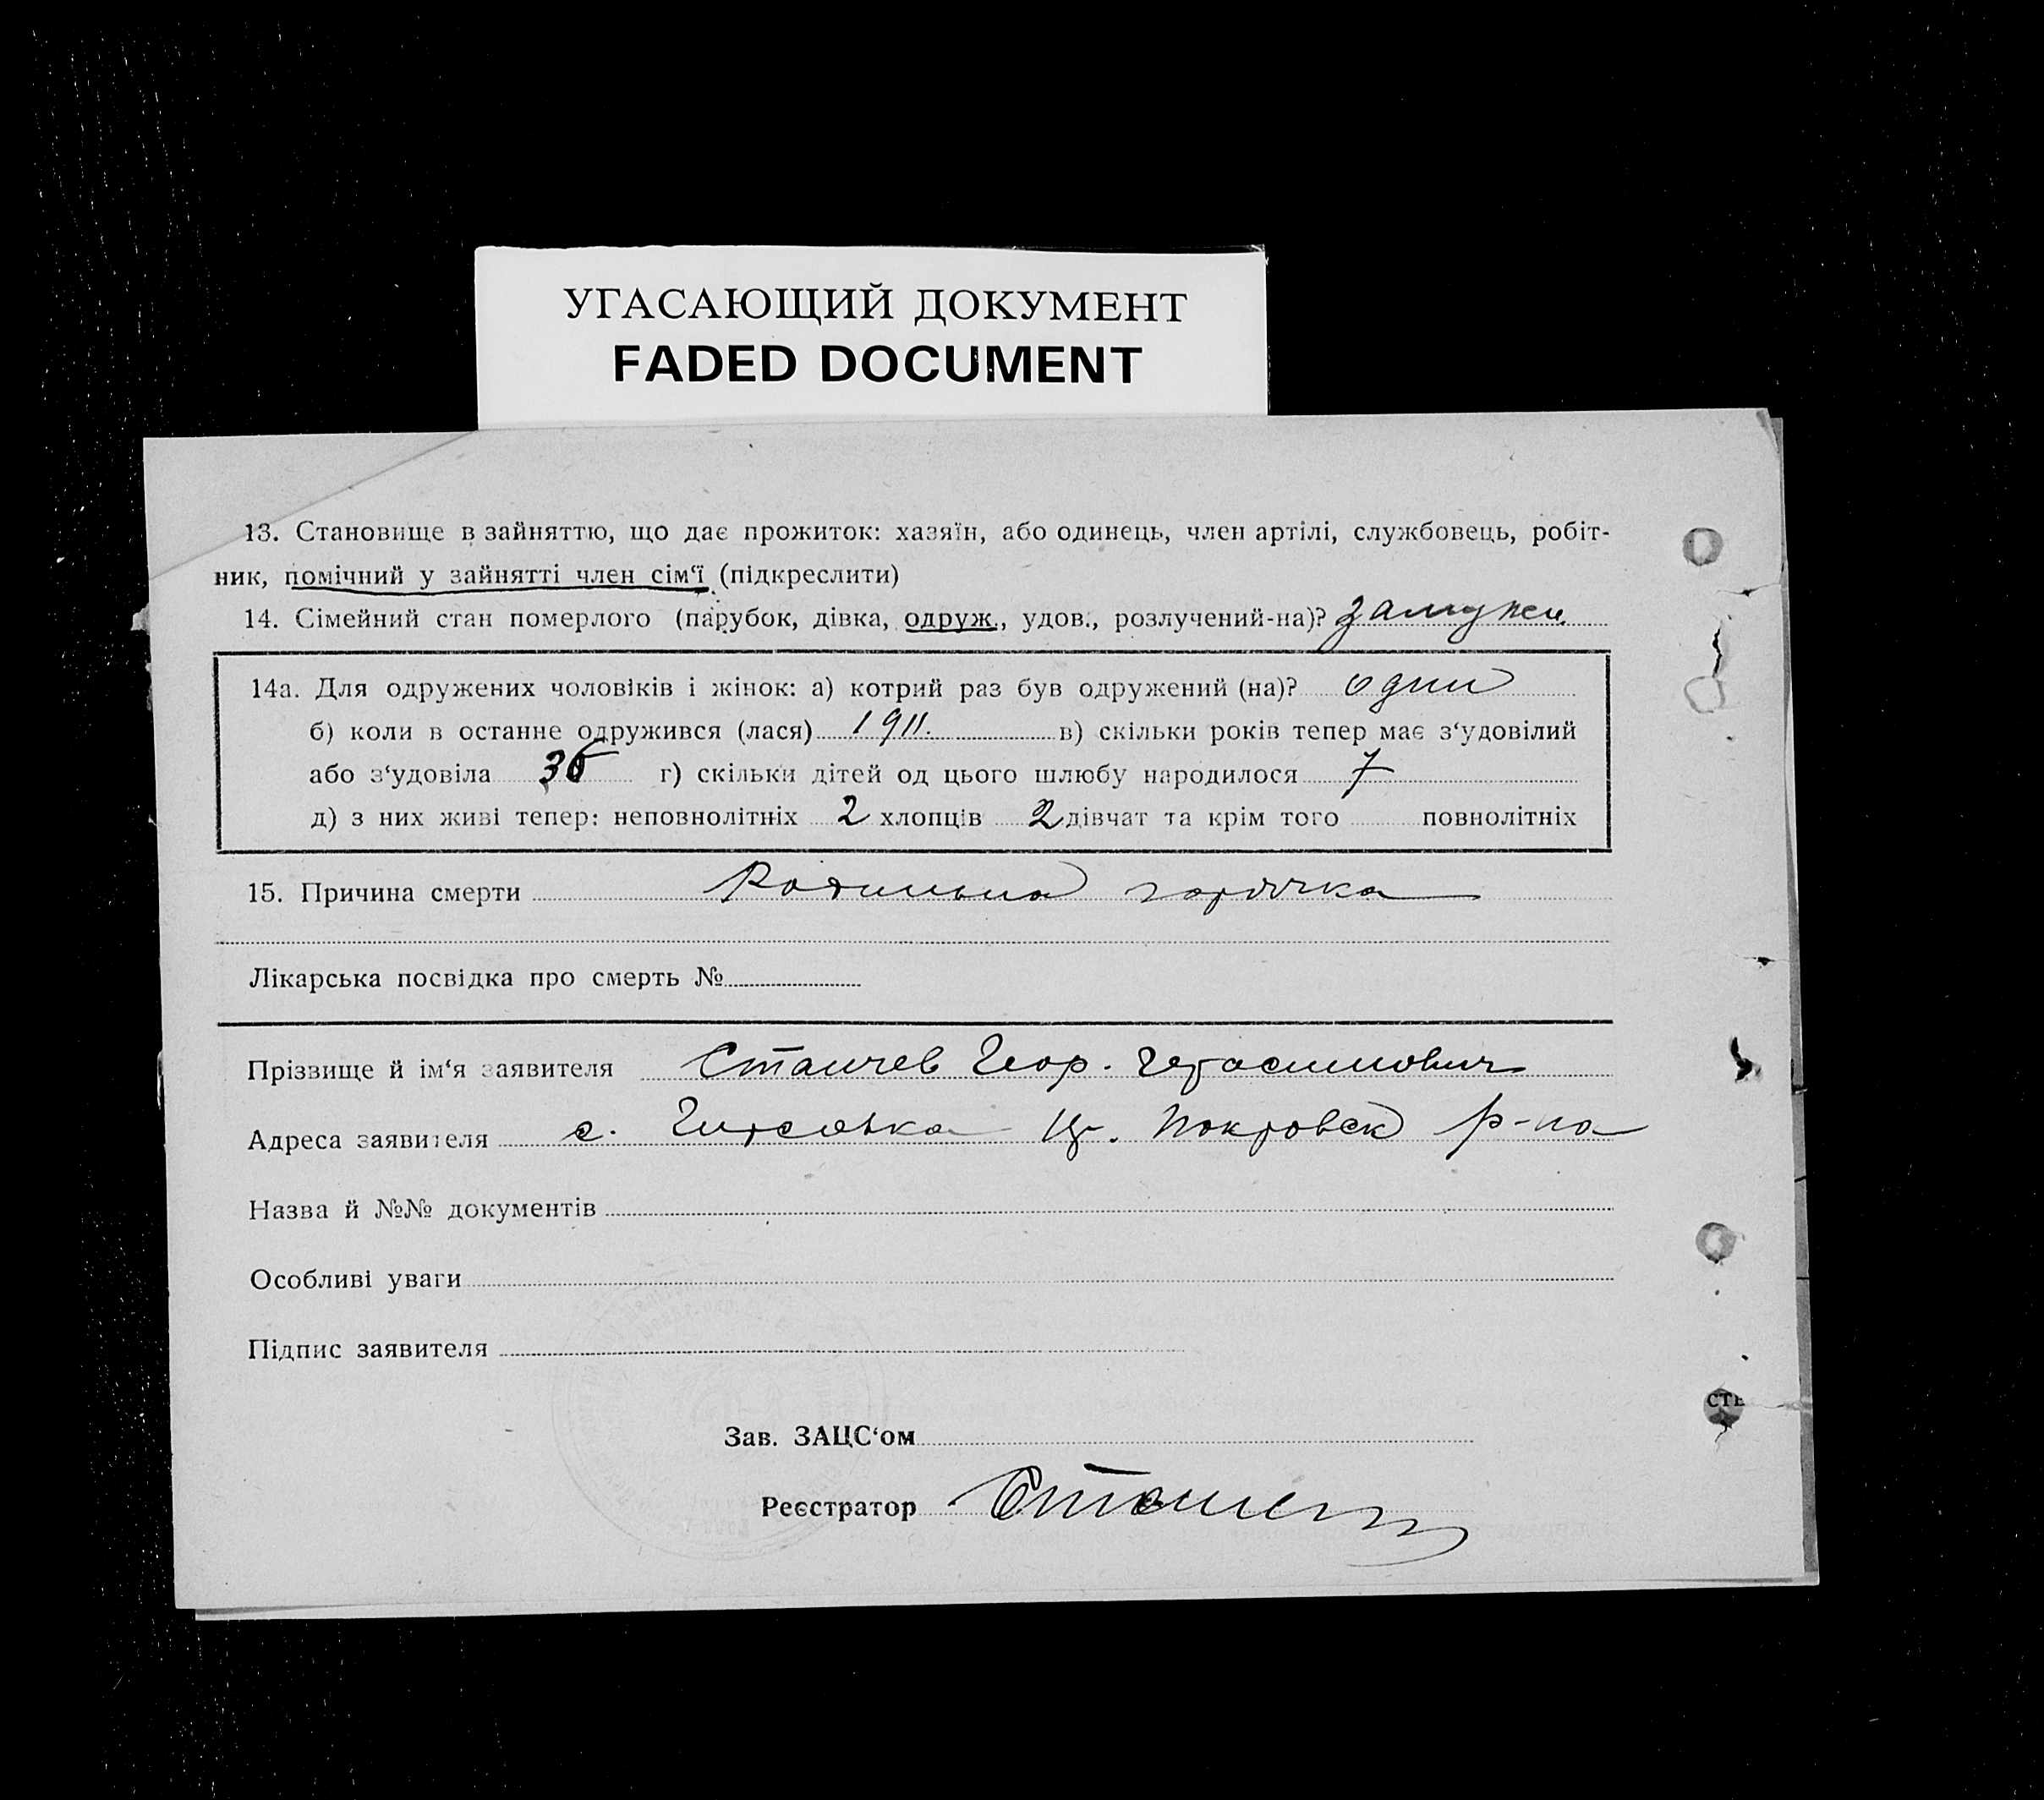 УГАСАЮЩИЙ ДОКУМЕНТ
FADED DOCUMENT
13. Становище в зайняттю, що дає прожиток: хазяїн, або одинець, член артілі, службовець, робіт-
ник, помічний у зайнятті член сім‘ї (підкреслити)
14. Сімейний стан померлого (парубок, дівка, одруж., удов., розлучений-на)? замужн.
14а. Для одружених чоловіків і жінок: а) котрий раз був одружений (на)? один
б) коли в останне одружився (лася) 1911. в) скільки років тепер має з‘удовілий
або з‘удовіла 36 г) скільки дітей од цього шлюбу народилося 7
д) з них живі тепер: неповнолітніх 2 хлопців 2 дівчат та крім того повнолітніх
15. Причина смерти Родильна горячка
Лікарська посвідка про смерть №
Прізвище й ім‘я заявителя Станчев Геор. Герасимович
Адреса заявителя с. Гирсовка Ц. Покровск р-на
Назва й №№ документів
Особливі уваги
Підпис заявителя
Зав. ЗАЦС‘ом
Реєстратор
СТЕ